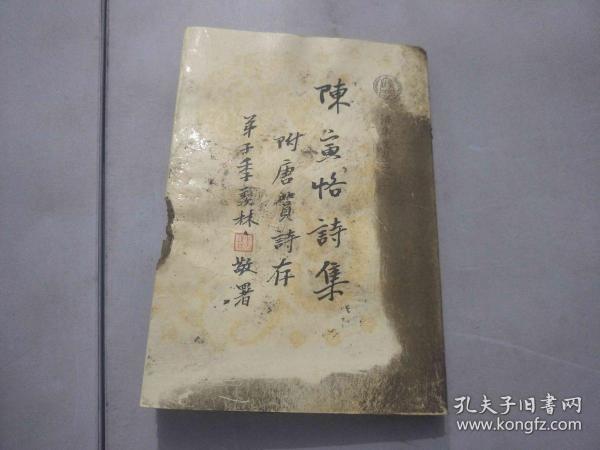 陳寅恪詩集
附唐篔詩存
弟子季羨林
敬署
孔夫子旧书网
www.kongfz.com